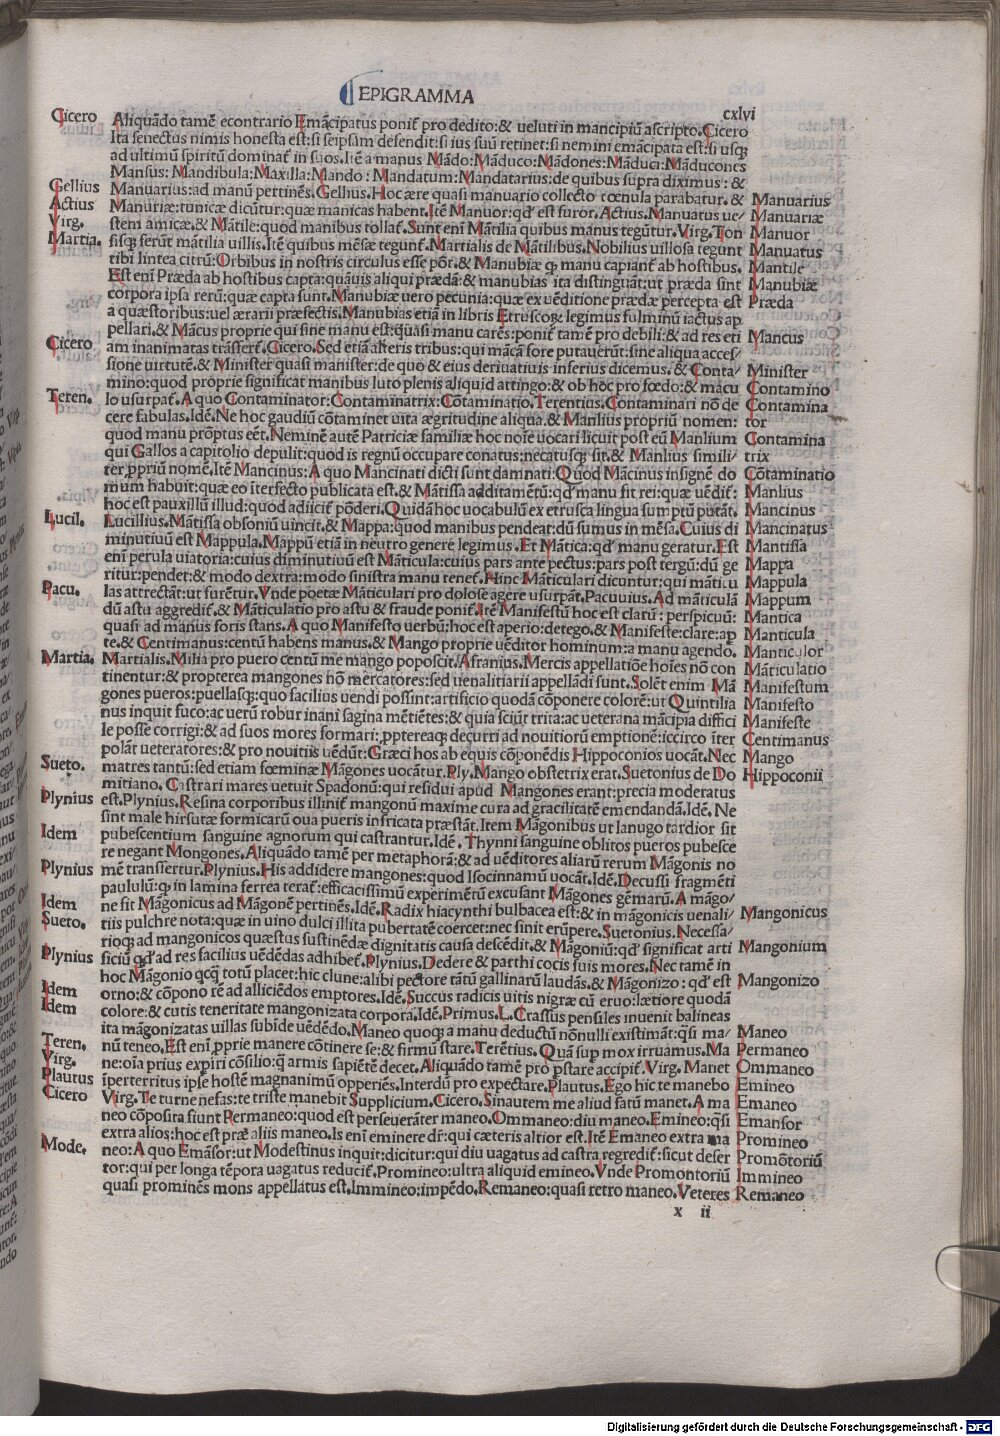 EPIGRAMMA
cxlvi
Cicero Aliquãdo tamẽ econtrario Emãcipatus ponit̃ pro dedito:& ueluti in mancipiũ ascripto.Cicero
Ita senectus nimis honesta est:si seipsam defendit:si ius suũ retinet:si nemini emãcipata est:si usq̃
ad ultimũ spiritũ dominat̃ in suos.Itẽ a manus Mãdo:Mãduco:Mãdones:Mãduci:Mãducones
Mansus:Mandibula:Maxilla:Mando:Mandatum:Mandatarius:de quibus supra diximus:&
Gellius Manuarius:ad manũ pertinẽs.Gellius.Hoc ære quasi manuario collecto cœnula parabatur.& Manuarius
Actius Manuriæ:tunicæ dicũtur:quæ manicas habent.Itẽ Manuor:qd̃ est furor.Actius.Manuatus ue/ Manuariæ
Virg. stem amicæ.& Mãtile:quod manibus tollat̃.Sunt eni Mãtilia quibus manus tegũtur.Virg.Ton Manuor
Martia. sisq̃ ferũt mãtilia uillis.Itẽ quibus mẽsæ tegunt̃.Martialis de Mãtilibus.Nobilius uillosa tegunt Manuatus
tibi lintea citrũ:Orbibus in nostris circulus esse põt.& Manubiæ q̃ manu capiant̃ ab hostibus. Mantile
Est eni Præda ab hostibus capta:quãuis aliqui prædã:& manubias ita distinguãt:ut præda sint Manubiæ
corpora ipsa rerũ:quæ capta sunt.Manubiæ uero pecunia:quæ ex uẽditione prædæ percepta est Præda
a quæstoribus:uel ærarii præfectis.Manubias etiã in libris Etruscoꝝ legimus fulminũ iactus ap
pellari.& Mãcus proprie qui sine manu est:quasi manu carẽs:ponit̃ tamẽ pro debili:& ad res eti Mancus
Cicero am inanimatas trãsfert̃.Cicero.Sed etiã alteris tribus:qui mãcã fore putauerũt:sine aliqua acces/
sione uirtutẽ.& Minister quasi manister:de quo & eius deriuatiuis inferius dicemus.& Conta/ Minister
mino:quod proprie significat manibus luto plenis aliquid attingo:& ob hoc pro fœdo:& macu Contamino
Teren. lo usurpat̃.A quo Contaminator:Contaminatrix:Cõtaminatio.Terentius.Contaminari nõ de Contamina
cere fabulas.Idẽ.Ne hoc gaudiũ cõtaminet uita ægritudine aliqua.& Manlius propriũ nomen: tor
quod manu prõptus eẽt.Neminẽ autẽ Patriciæ familiæ hoc noĩe uocari licuit post eũ Manlium Contamina
qui Gallos a capitolio depulit:quod is regnũ occupare conatus:necatusq̃ sit.& Manlius simili/ trix
ter ꝓpriũ nomẽ.Itẽ Mancinus:A quo Mancinati dicti sunt damnati:Quod Mãcinus insignẽ do Cõtaminatio
mum habuit:quæ eo ĩterfecto publicata est.& Mãtissa additamẽtũ:qd̃ manu fit rei:quæ uẽdit̃: Manlius
hoc est pauxillũ illud:quod adiicit̃ põderi.Quidã hoc uocabulũ ex etrusca lingua sumptũ putãt. Mancinus
Lucil. Lucillius.Mãtissa obsoniũ uincit.& Mappa:quod manibus pendeat:dũ sumus in mẽsa.Cuius di Mancinatus
minutiuũ est Mappula.Mappũ etiã in neutro genere legimus.Et Mãtica:qd̃ manu geratur.Est Mantissa
eni perula uiatoria:cuius diminutiuũ est Mãticula:cuius pars ante pectus:pars post tergũ:dũ ge Mappa
ritur:pendet:& modo dextra:modo sinistra manu tenet̃.Hinc Mãticulari dicuntur:qui mãticu Mappula
Pacu. las attrectãt:ut furẽtur.Vnde poetæ Mãticulari pro dolose agere usurpãt.Pacuuius.Ad mãticulã Mappum
dũ astu aggredit̃.& Mãticulatio pro astu & fraude ponit̃.Itẽ Manifestũ hoc est clarũ:perspicuũ: Mantica
quasi ad manus foris stans.A quo Manifesto uerbũ:hoc est aperio:detego.& Manifeste:clare:ap Manticula
te.& Centimanus:centũ habens manus.& Mango proprie uẽditor hominum:a manu agendo. Manticulor
Martia. Martialis.Milia pro puero centũ me mango poposcit.Afranius.Mercis appellatiõe hoĩes nõ con Mãticulatio
tinentur:& propterea mangones nõ mercatores:sed uenalitiarii appellãdi sunt.Solẽt enim Mã Manifestum
gones pueros:puellasq̃:quo facilius uendi possint:artificio quodã cõponere colorẽ:ut Quintilia Manifesto
nus inquit fuco:ac uerũ robur inani sagina mẽtiẽtes:& quia sciũt trita:ac ueterana mãcipia diffici Manifeste
le posse corrigi:& ad suos mores formari:ꝓptereaq̃ decurri ad nouitiorũ emptionẽ:iccirco ĩter Centimanus
polãt ueteratores:& pro nouitiis uẽdũt:Græci hos ab equis cõponẽdis Hippoconios uocãt.Nec Mango
Sueto. matres tantũ:sed etiam fœminæ Mãgones uocãtur.Ply.Mango obstetrix erat.Suetonius de Do Hippoconii
mitiano.Castrari mares uetuit Spadonũ:qui residui apud Mangones erant:precia moderatus
Plynius est.Plynius.Resina corporibus illinit̃ mangonũ maxime cura ad gracilitatẽ emendandã.Idẽ.Ne
sint male hirsutæ formicarũ oua pueris infricata præstãt.Item Mãgonibus ut lanugo tardior sit
Idem pubescentium sanguine agnorum qui castrantur.Idẽ.Thynni sanguine oblitos pueros pubesce
re negant Mongones.Aliquãdo tamẽ per metaphorã:& ad uẽditores aliarũ rerum Mãgonis no
Plynius mẽ transfertur.Plynius.His addidere mangones:quod Isocinnamũ uocãt.Idẽ.Decussi fragmẽti
paululũ:q̃ in lamina ferrea terat̃:efficacissimũ experimẽtũ excusant Mãgones gẽmarũ.A mãgo/
Idem ne fit Mãgonicus ad Mãgonẽ pertinẽs.Idẽ.Radix hiacynthi bulbacea est:& in mãgonicis uenali/ Mangonicus
Sueto. tiis pulchre nota:quæ in uino dulci illita pubertatẽ coercet:nec sinit erũpere.Suetonius.Necessa/
rioq̃ ad mangonicos quæstus sustinẽdæ dignitatis causa descẽdit.& Mãgoniũ:qd̃ significat arti Mangonium
Plynius ficiũ qd̃ ad res facilius uẽdẽdas adhibet̃.Plynius.Dedere & parthi cocis suis mores.Nec tamẽ in
hoc Mãgonio qcq̃ totũ placet:hic clune:alibi pectore tãtũ gallinarũ laudãs.& Mãgonizo:qd̃ est Mangonizo
Idem orno:& cõpono rẽ ad alliciẽdos emptores.Idẽ.Succus radicis uitis nigræ cũ eruo:lætiore quodã
Idem colore:& cutis teneritate mangonizata corpora.Idẽ.Primus.L.Crassus pensiles inuenit balineas
ita mãgonizatas uillas subide uẽdẽdo.Maneo quoq̃ a manu deductũ nõnulli existimãt:q̃si ma/ Maneo
Teren. nũ teneo.Est eni ꝓprie manere cõtinere se:& firmũ stare.Terẽtius.Quã sup mox irruamus.Ma Permaneo
Virg. ne:oĩa prius expiri cõsilio:q̃ armis sapiẽtẽ decet.Aliquãdo tamẽ pro pstare accipit̃.Virg.Manet Ommaneo
Plautus ĩperterritus ipse hostẽ magnanimũ opperiẽs.Interdũ pro expectare.Plautus.Ego hic te manebo Emineo
Cicero Virg.Te turne nefas:te triste manebit Supplicium.Cicero.Sinautem me aliud fatũ manet.A ma Emaneo
neo cõposita fiunt Permaneo:quod est perseuerãter maneo.Ommaneo:diu maneo.Emineo:q̃si Emansor
extra alios:hoc est præ aliis maneo.Is eni eminere dr̃:qui cæteris altior est.Itẽ Emaneo extra ma Promineo
Mode. neo:A quo Emãsor:ut Modestinus inquit:dicitur:qui diu uagatus ad castra regredit̃:sicut deser Promõtoriũ
tor:qui per longa tẽpora uagatus reducit̃.Promineo:ultra aliquid emineo.Vnde Promontoriũ Immineo
quasi prominẽs mons appellatus est.Immineo:impẽdo.Remaneo:quasi retro maneo.Veteres Remaneo
x ii
Digitalisierung gefördert durch die Deutsche Forschungsgemeinschaft - DFG